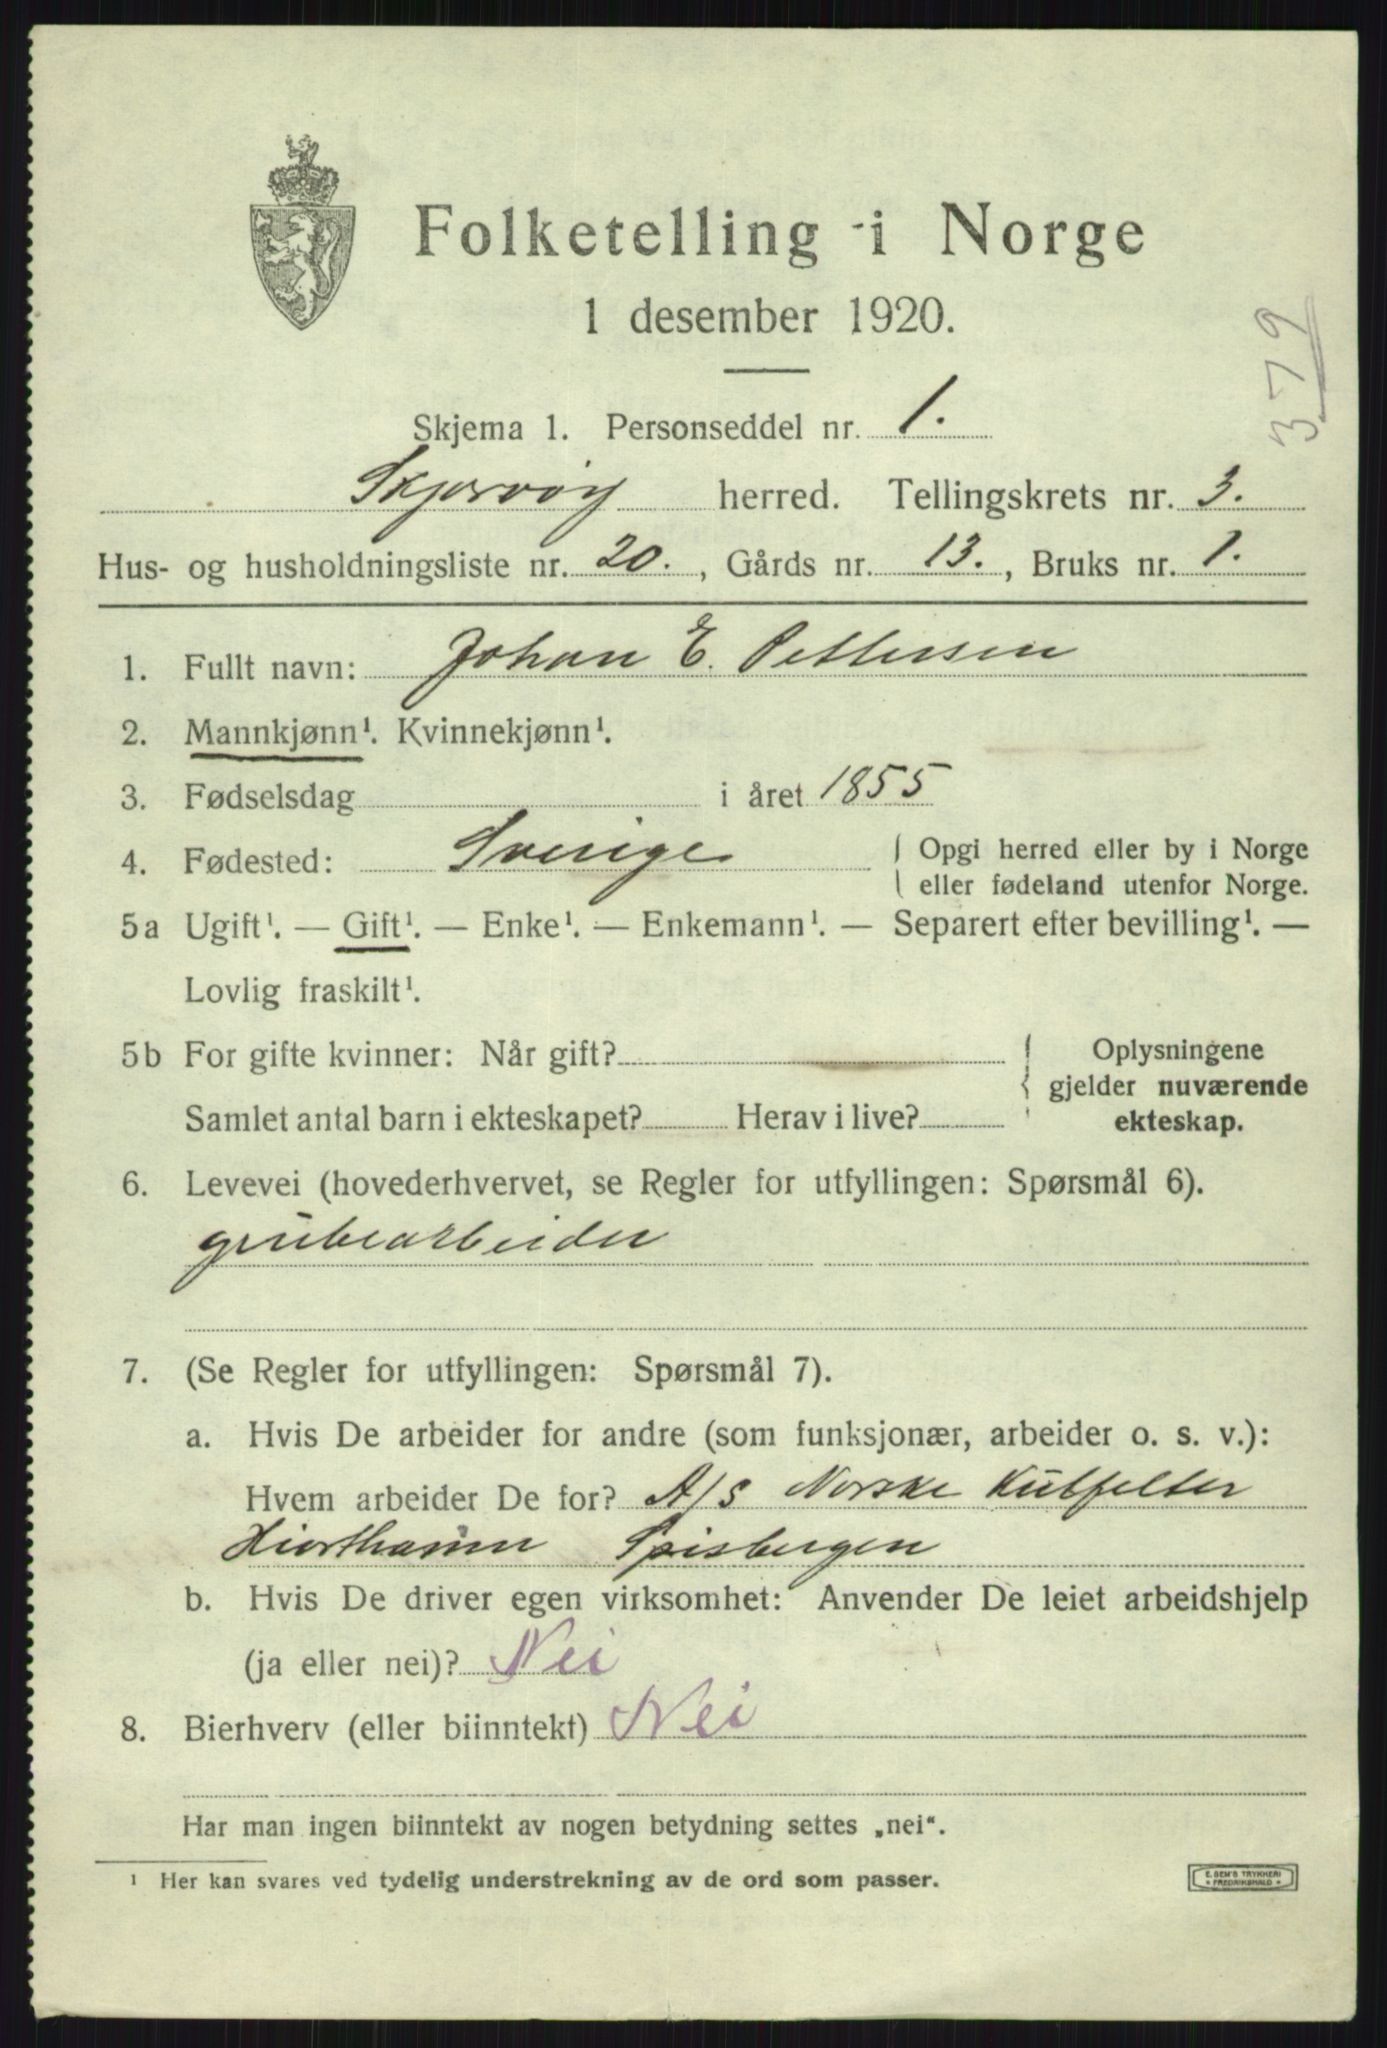 Folketelling i Norge
1 desember 1920.
379
Skjema 1. Personseddel nr. 1.
Skjervøy herred. Tellingskrets nr. 3.
Hus- og husholdningsliste nr. 20., Gårds nr. 13., Bruks nr. 1.
1. Fullt navn: Johan E. Pettersen
2. Mannkjønn¹. Kvinnekjønn¹.
3. Fødselsdag i året 1855
4. Fødested: Sverige { Opgi herred eller by i Norge
eller fødeland utenfor Norge.
5a Ugift¹. — Gift¹. — Enke¹. — Enkemann¹. — Separert efter bevilling¹. —
Lovlig fraskilt¹.
5b For gifte kvinner: Når gift? { Oplysningene
gjelder nuværende
Samlet antal barn i ekteskapet? Herav i live? ekteskap.
6. Levevei (hovederhvervet, se Regler for utfyllingen: Spørsmål 6).
grubearbeider
7. (Se Regler for utfyllingen: Spørsmål 7).
a. Hvis De arbeider for andre (som funksjonær, arbeider o. s. v.):
Hvem arbeider De for? A/S Norske Kulfelter
Hiorthamn Spisbergen
b. Hvis De driver egen virksomhet: Anvender De leiet arbeidshjelp
(ja eller nei)? Nei
8. Bierhverv (eller biinntekt) Nei
Har man ingen biinntekt av nogen betydning settes „nei“.
¹ Her kan svares ved tydelig understrekning av de ord som passer.
E. SEM'S TRYKKERI
* FREDRIKSHALD *